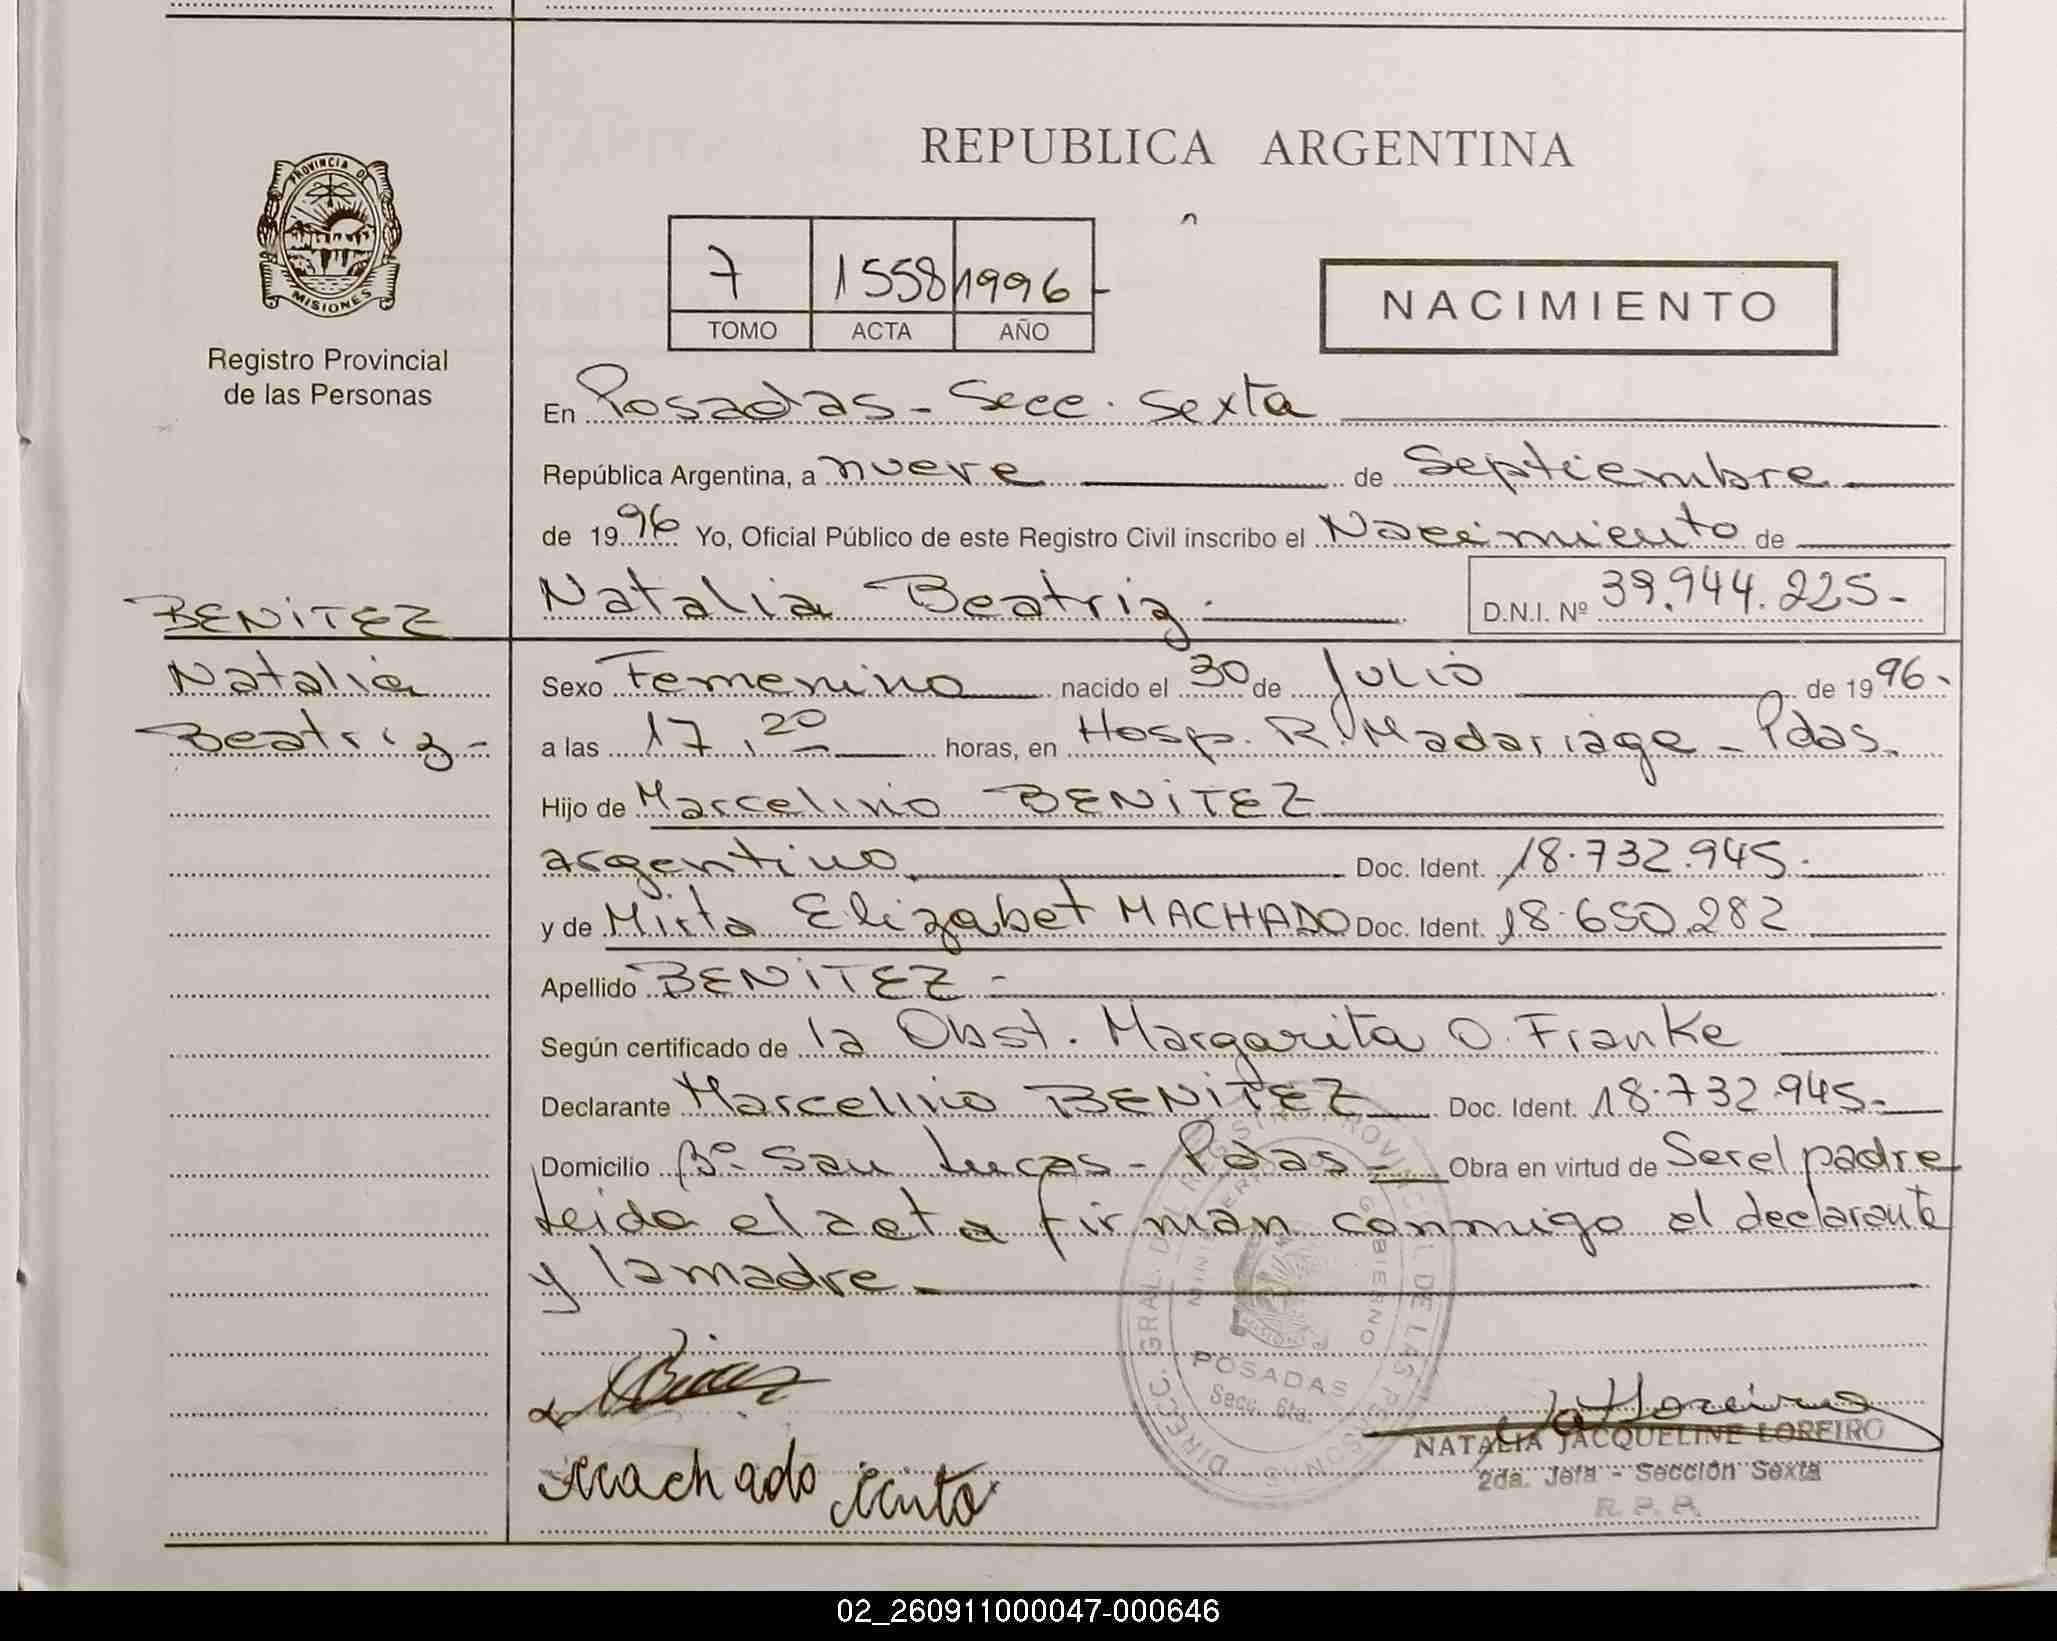 REPUBLICA ARGENTINA
PROVINCIA DE
MISIONES
Registro Provincial
de las Personas
7 1558 1996-
TOMO ACTA AÑO
NACIMIENTO
En Posadas - Secc. Sexta
República Argentina, a nueve de Septiembre
de 1996 Yo, Oficial Público de este Registro Civil inscribo el Nacimiento de
Natalia Beatriz.
D.N.I. Nº 39.944.225-
BENITEZ
Natalia
Beatriz-
Sexo Femenino nacido el 30 de Julio de 1996.
a las 17,20 horas, en Hosp. R. Madariaga - Pdas.
Hijo de Marcelino BENITEZ
argentino. Doc. Ident. 18.732.945.
y de Mirta Elizabet MACHADO Doc. Ident. 18.650.282
Apellido BENITEZ -
Según certificado de la Obst. Margarita O. Franke
Declarante Marcelino BENITEZ Doc. Ident. 18.732.945.-
Domicilio Bº. San Lucas - Pdas - Obra en virtud de Ser el padre
Leida el acta firman conmigo el declarante
y la madre
DIRECC. GRAL. DEL REGISTRO PROVINCIAL DE LAS PERSONAS
MINISTERIO GOBIERNO
POSADAS
Secc. 6ta.
NATALIA JACQUELINE LOREIRO
2da. Jefa - Sección Sexta
R. P. P.
Machado Mirta
02_260911000047-000646